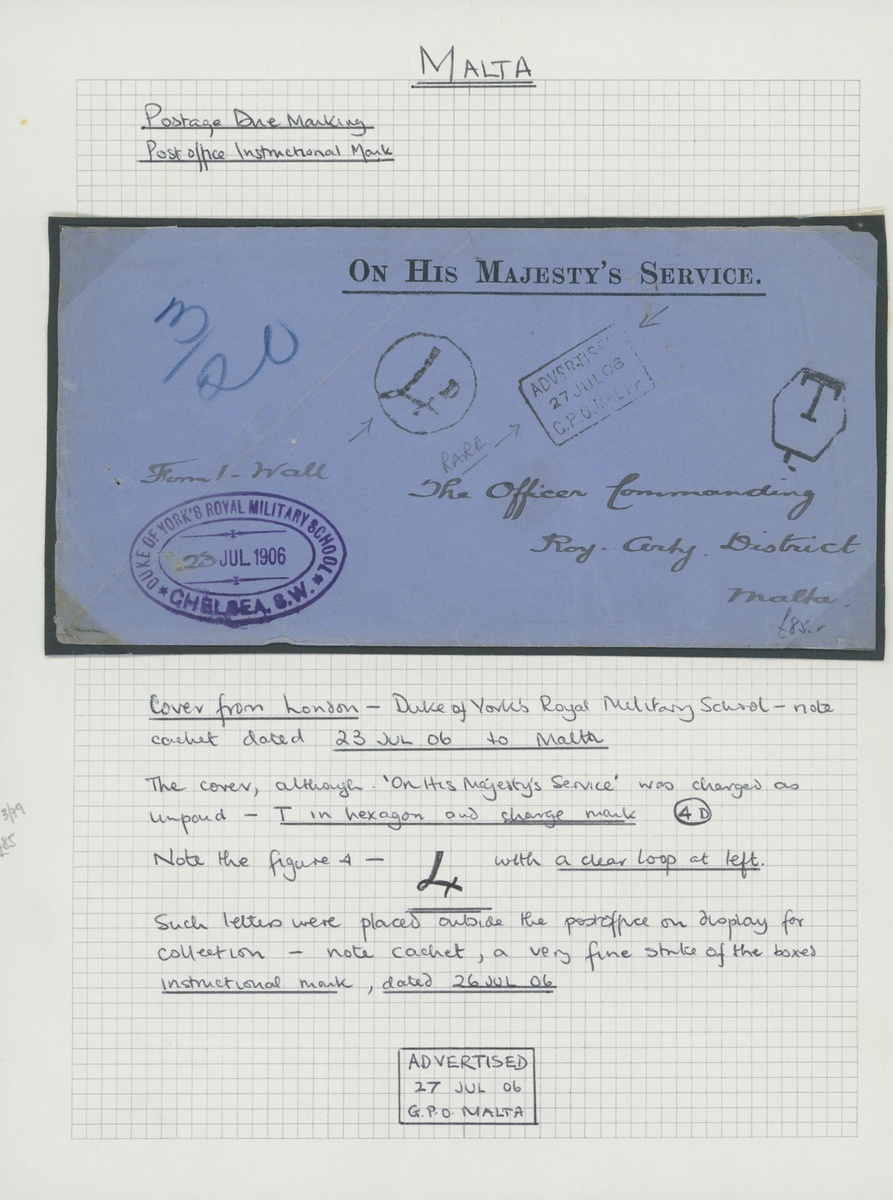 MALTA
Postage Due Marking
Post office Instructional Mark
ON HIS MAJESTY'S SERVICE.
3/20
4D
ADVERTISED
27 JUL 06
G.P.O. MALTA
T
RARE
Form 1 - Wall
The Officer Commanding
Roy. Arty. District
Malta.
£85.-
DUKE OF YORK'S ROYAL MILITARY SCHOOL
23 JUL 1906
CHELSEA. S.W.
Cover from London - Duke of York's Royal Military School - note
cachet dated 23 JUL 06 to Malta
The cover, although 'On His Majesty's Service' was charged as
unpaid - T in hexagon and charge mark 4D
Note the figure 4 - 4 with a clear loop at left.
Such letters were placed outside the post office on display for
collection - note cachet, a very fine strike of the boxed
instructional mark, dated 26 JUL 06
ADVERTISED
27 JUL 06
G.P.O. MALTA
£85